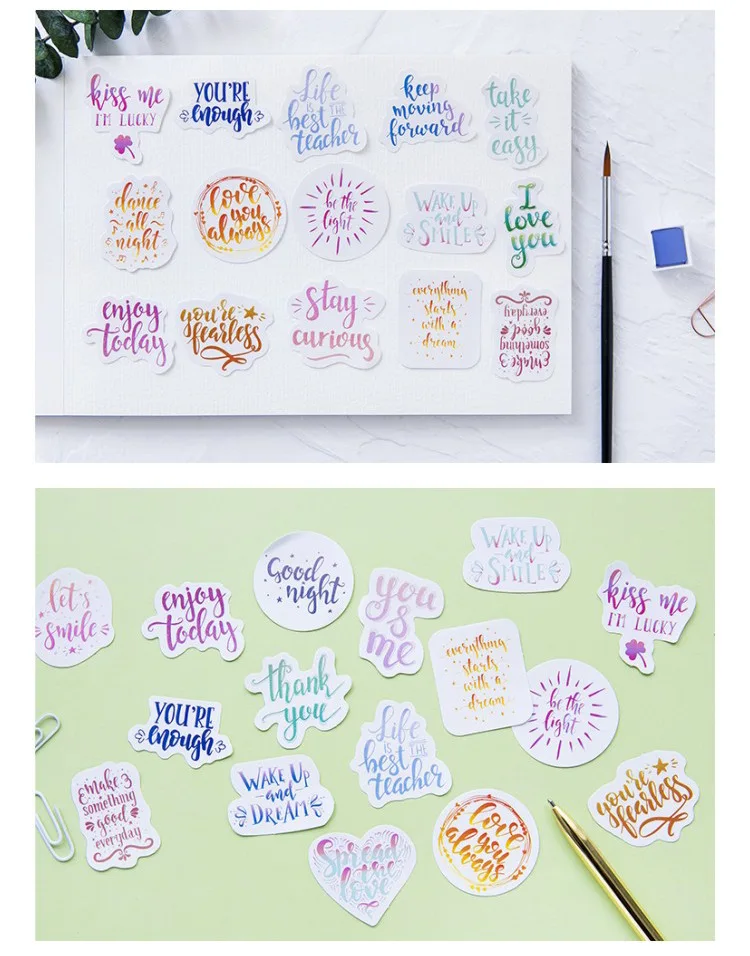 kiss me
I'M LUCKY
YOU'RE
enough
Life
IS THE
best
teacher
keep
moving
forward
take
it
easy
dance
all
night
love
you
always
be the
light
WAKE UP
and
SMILE
I
love
you
enjoy
today
you're
fearless
stay
curious
everything
starts
with a
dream
make
something
good
everyday
let's
smile
enjoy
today
Good
night
you
is
me
WAKE UP
and
SMILE
kiss me
I'M LUCKY
YOU'RE
enough
thank
you
everything
starts
with a
dream
be the
light
Life
IS THE
best
teacher
make
something
good
everyday
WAKE UP
and
DREAM
Spread
the
love
love
you
always
you're
fearless